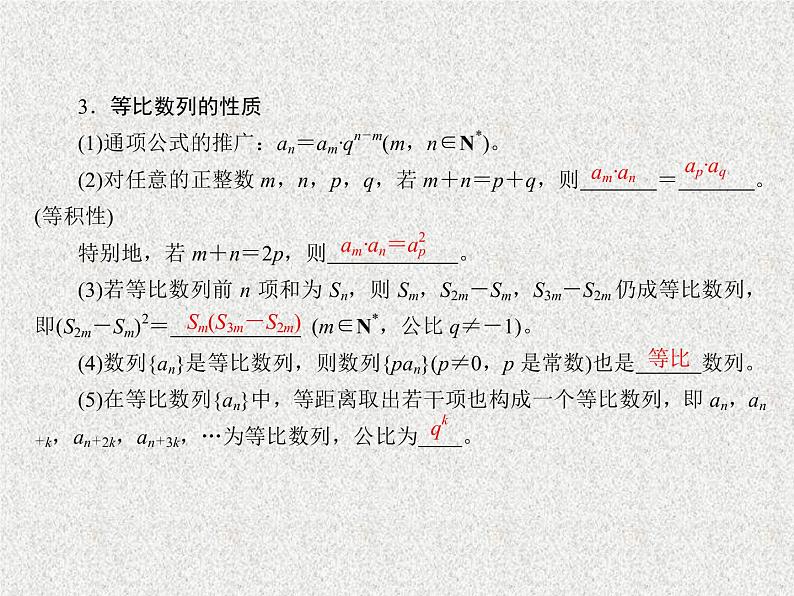 3．等比数列的性质
(1)通项公式的推广：aₙ＝aₘ·qⁿ⁻ᵐ(m，n∈N*)。
(2)对任意的正整数 m，n，p，q，若 m＋n＝p＋q，则 aₘ·aₙ ＝ a_p·a_q 。
(等积性)
特别地，若 m＋n＝2p，则 aₘ·aₙ＝a_p² 。
(3)若等比数列前 n 项和为 Sₙ，则 Sₘ，S₂ₘ－Sₘ，S₃ₘ－S₂ₘ 仍成等比数列，
即(S₂ₘ－Sₘ)²＝ Sₘ(S₃ₘ－S₂ₘ) (m∈N*，公比 q≠－1)。
(4)数列{aₙ}是等比数列，则数列{paₙ}(p≠0，p 是常数)也是 等比 数列。
(5)在等比数列{aₙ}中，等距离取出若干项也构成一个等比数列，即 aₙ，aₙ
₊ₖ，aₙ₊₂ₖ，aₙ₊₃ₖ，…为等比数列，公比为 qᵏ 。